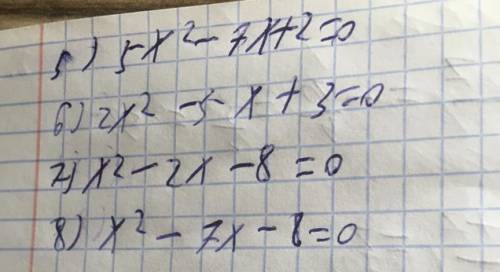 5) 5x² - 7x + 2 = 0
6) 2x² - 5x + 3 = 0
7) x² - 2x - 8 = 0
8) x² - 7x - 8 = 0